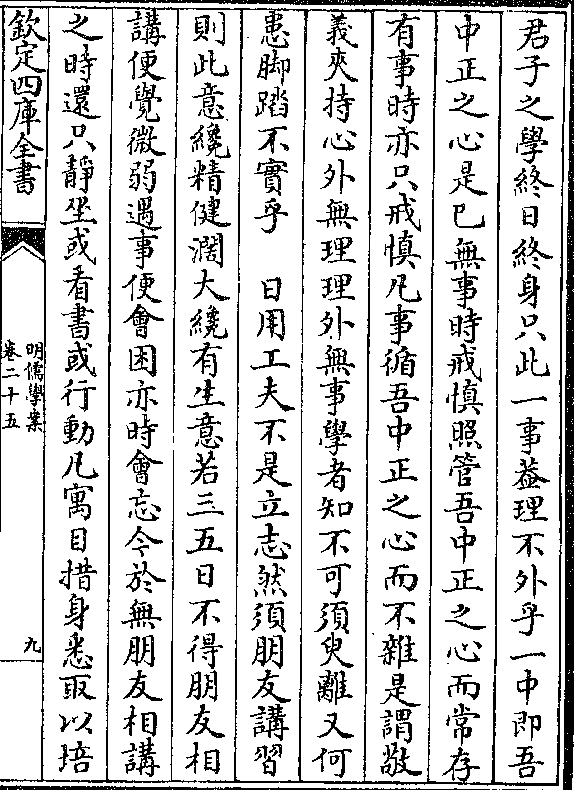 君子之學終日終身只此一事葢理不外乎一中即吾
中正之心是已無事時戒慎照管吾中正之心而常存
有事時亦只戒慎凡事循吾中正之心而不雜是謂敬
義夾持心外無理理外無事學者知不可須臾離又何
患脚蹈不實乎　日用工夫不是立志然須朋友講習
則此意纔精健濶大纔有生意若三五日不得朋友相
講便覺微弱遇事便會困亦時會忘今於無朋友相講
之時還只靜坐或看書或行動凡寓目措身悉取以培
欽定四庫全書
明儒學案
卷二十五
九